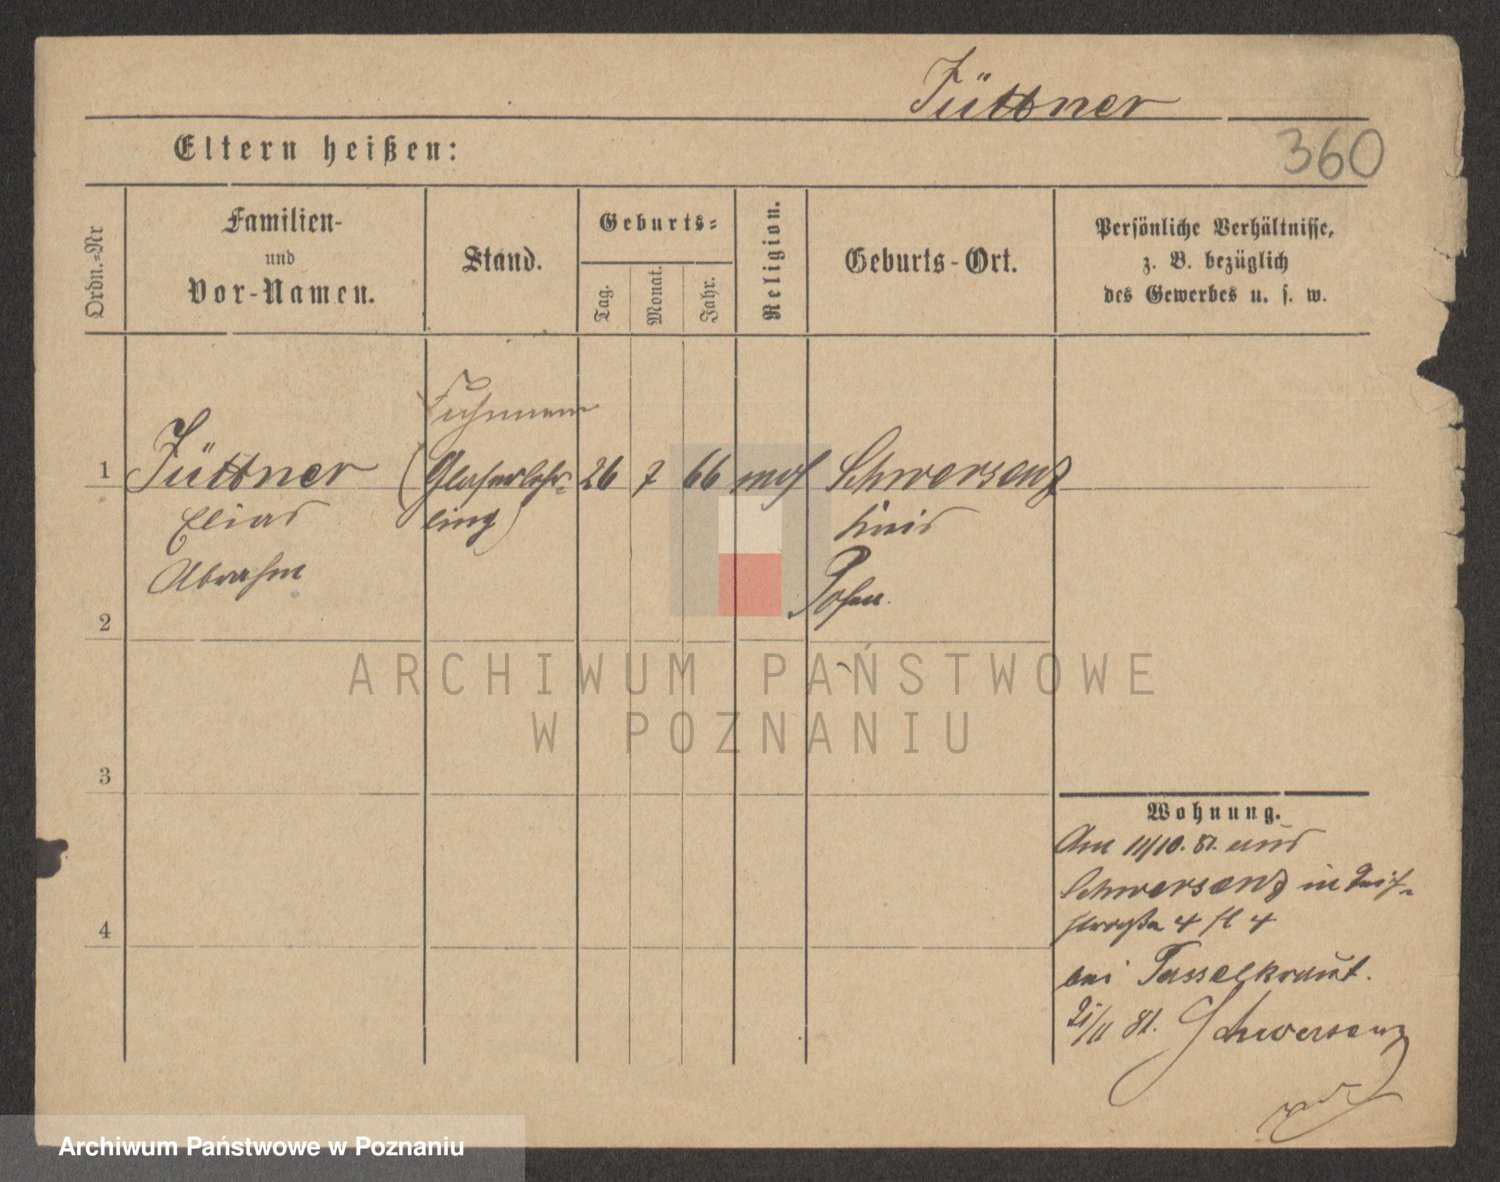 Jüttner
360
Eltern heißen:
Ordn.-Nr
Familien-
und
Vor-Namen.
Stand.
Geburts-
Tag.
Monat.
Jahr.
Religion.
Geburts-Ort.
Persönliche Verhältnisse,
z. B. bezüglich
des Gewerbes u. s. w.
1 Jüttner (Glaserlehr- 26 7 66 mos Schwersenz
Elias ling) Kreis
Abraham Posen.
2
3
4
Wohnung.
Am 11/10. 81. aus
Schwersenz in
straße 4
bei Tasselkraut.
21/11 81. Schwersenz
ARCHIWUM PAŃSTWOWE
W POZNANIU
Archiwum Państwowe w Poznaniu